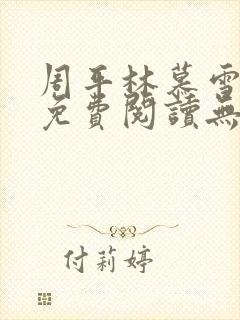 周平林慕雪
免費閱讀無
付莉婷